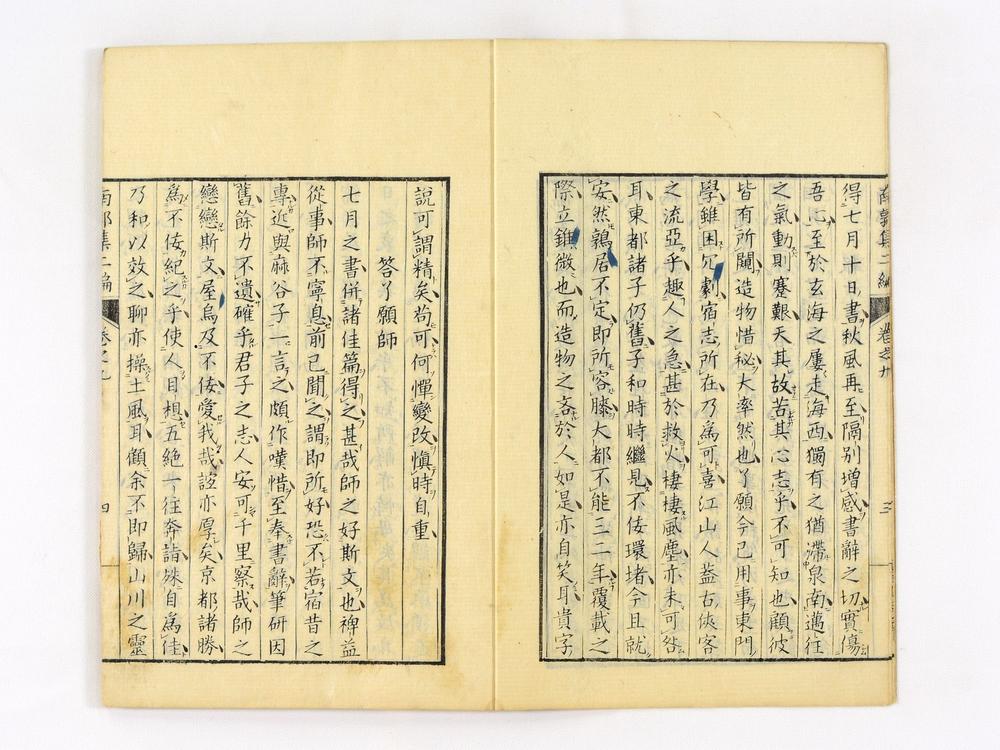 南郭集二編 卷之九 三
得七月十日書秋風再至隔別增感書辭之切實傷
吾心至於玄海之屢走海西獨有之猶滯泉南邁往
之氣動則蹇艱天其故苦其心志乎不可知也顧彼
皆有所關造物惜秘大率然也了願今已用事東門
學雖困冗劇宿志所在乃為可喜江山人益右俠客
之流亞乎趣人之急甚於救火棲棲風塵亦未可咎
耳東都諸子仍舊子和時時繼見不佞環堵今且就
安然鶉居不定即所容膝大都不能三二年覆載之
際立錐微也而造物之吝於人如是亦自笑耳貴字
說可謂精矣苟可何憚變改愼時自重
答了願師
七月之書併諸佳篇得之甚哉師之好斯文也裨益
從事師不寧息前已聞之謂即所好恐不若宿昔之
專近與麻谷子一言之頗作嘆惜至奉書辭筆研因
舊餘力不遺確乎君子之志人安可千里察哉師之
戀戀斯文屋烏及不佞愛我哉誼亦厚矣京都諸勝
為不佞紀之乎使人目想五絕一往奔詣殊自為佳
乃和以效之聊亦操土風耳顧余不即歸山川之靈
南郭集二編 卷之九 四